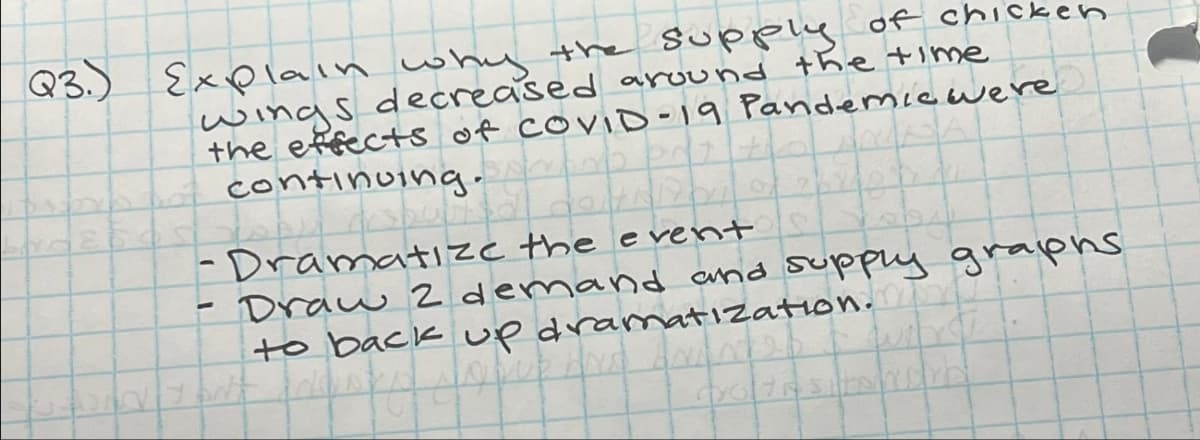 Q3.) Explain why the supply of chicken
wings decreased around the time
the effects of COVID-19 Pandemic were
continuing.
- Dramatize the event
- Draw 2 demand and supply graphs
to back up dramatization.